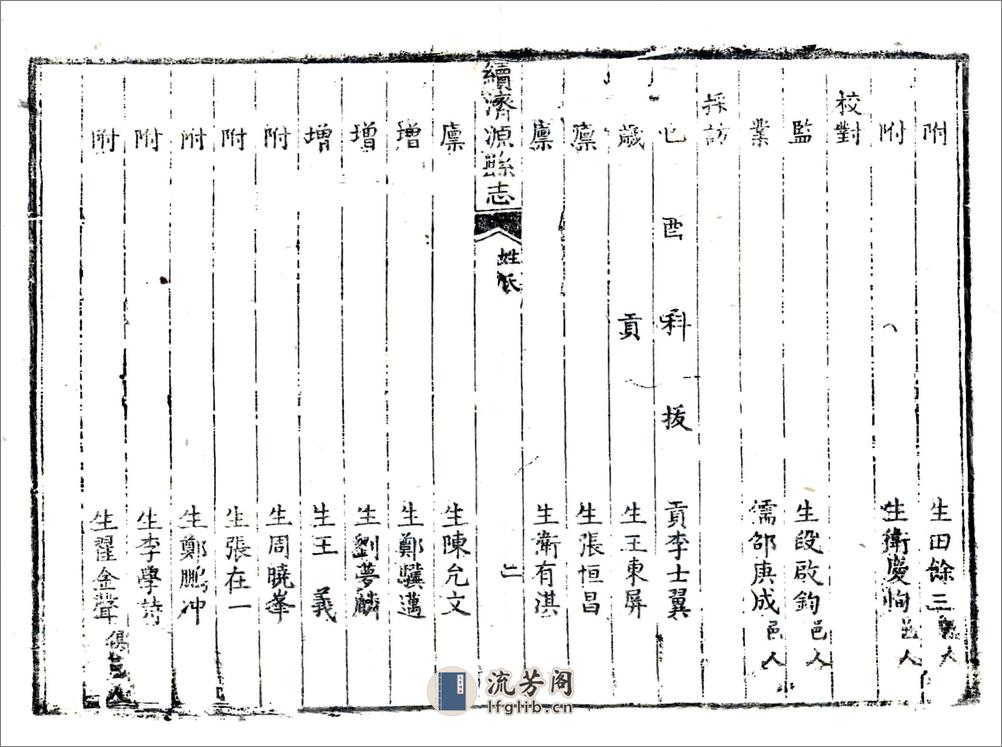 附生田餘三邑人
附生衛慶恂邑人
校對
監生段啟鈞邑人
業儒邵庚成邑人
採訪
己酉科拔貢李士翼
歲貢生王東屏
廪生張恒昌
廪生衛有淇
續濟源縣志
姓氏
二
廪生陳允文
增生鄭驥邁
增生劉夢麟
增生王義
附生周曉峯
附生張在一
附生鄭鵬冲
附生李學詩
附生翟金聲俱邑人
流芳阁
lfglib.cn